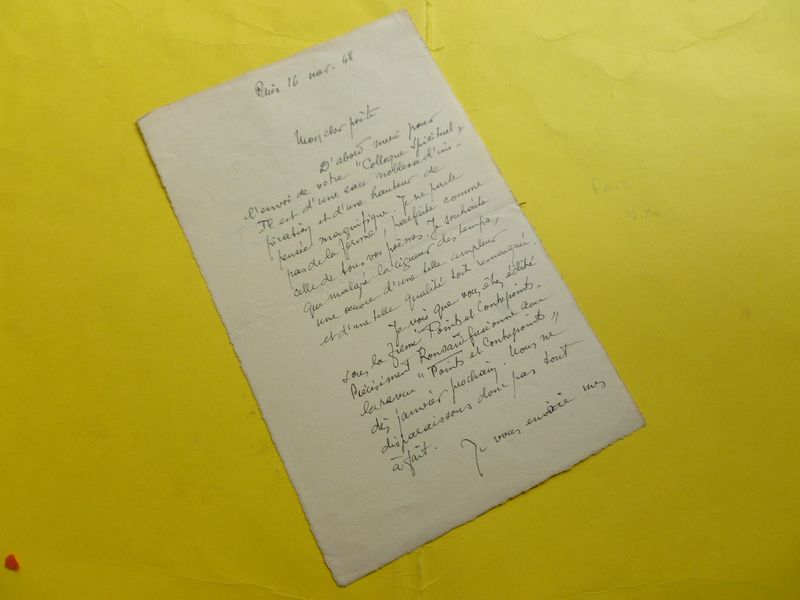 Paris 16 nov. 48
Mon cher poète
D'abord merci pour
l'envoi de votre "Colloque Spirituel"
Il est d'une rare noblesse d'ins-
piration et d'une hauteur de
pensée magnifique. Je ne parle
pas de la forme, parfaite comme
celle de tous vos poèmes. Je souhaite
que malgré la rigueur des temps,
une œuvre d'une telle ampleur
et d'une telle qualité soit remarquée.
Je vois que vous êtes édité
sous la firme Points et Contrepoints.
Précisément Ronsard fusionne avec
la revue "Points et Contrepoints"
dès janvier prochain. Nous ne
disparaissons donc pas tout
à fait.
Je vous envoie mes